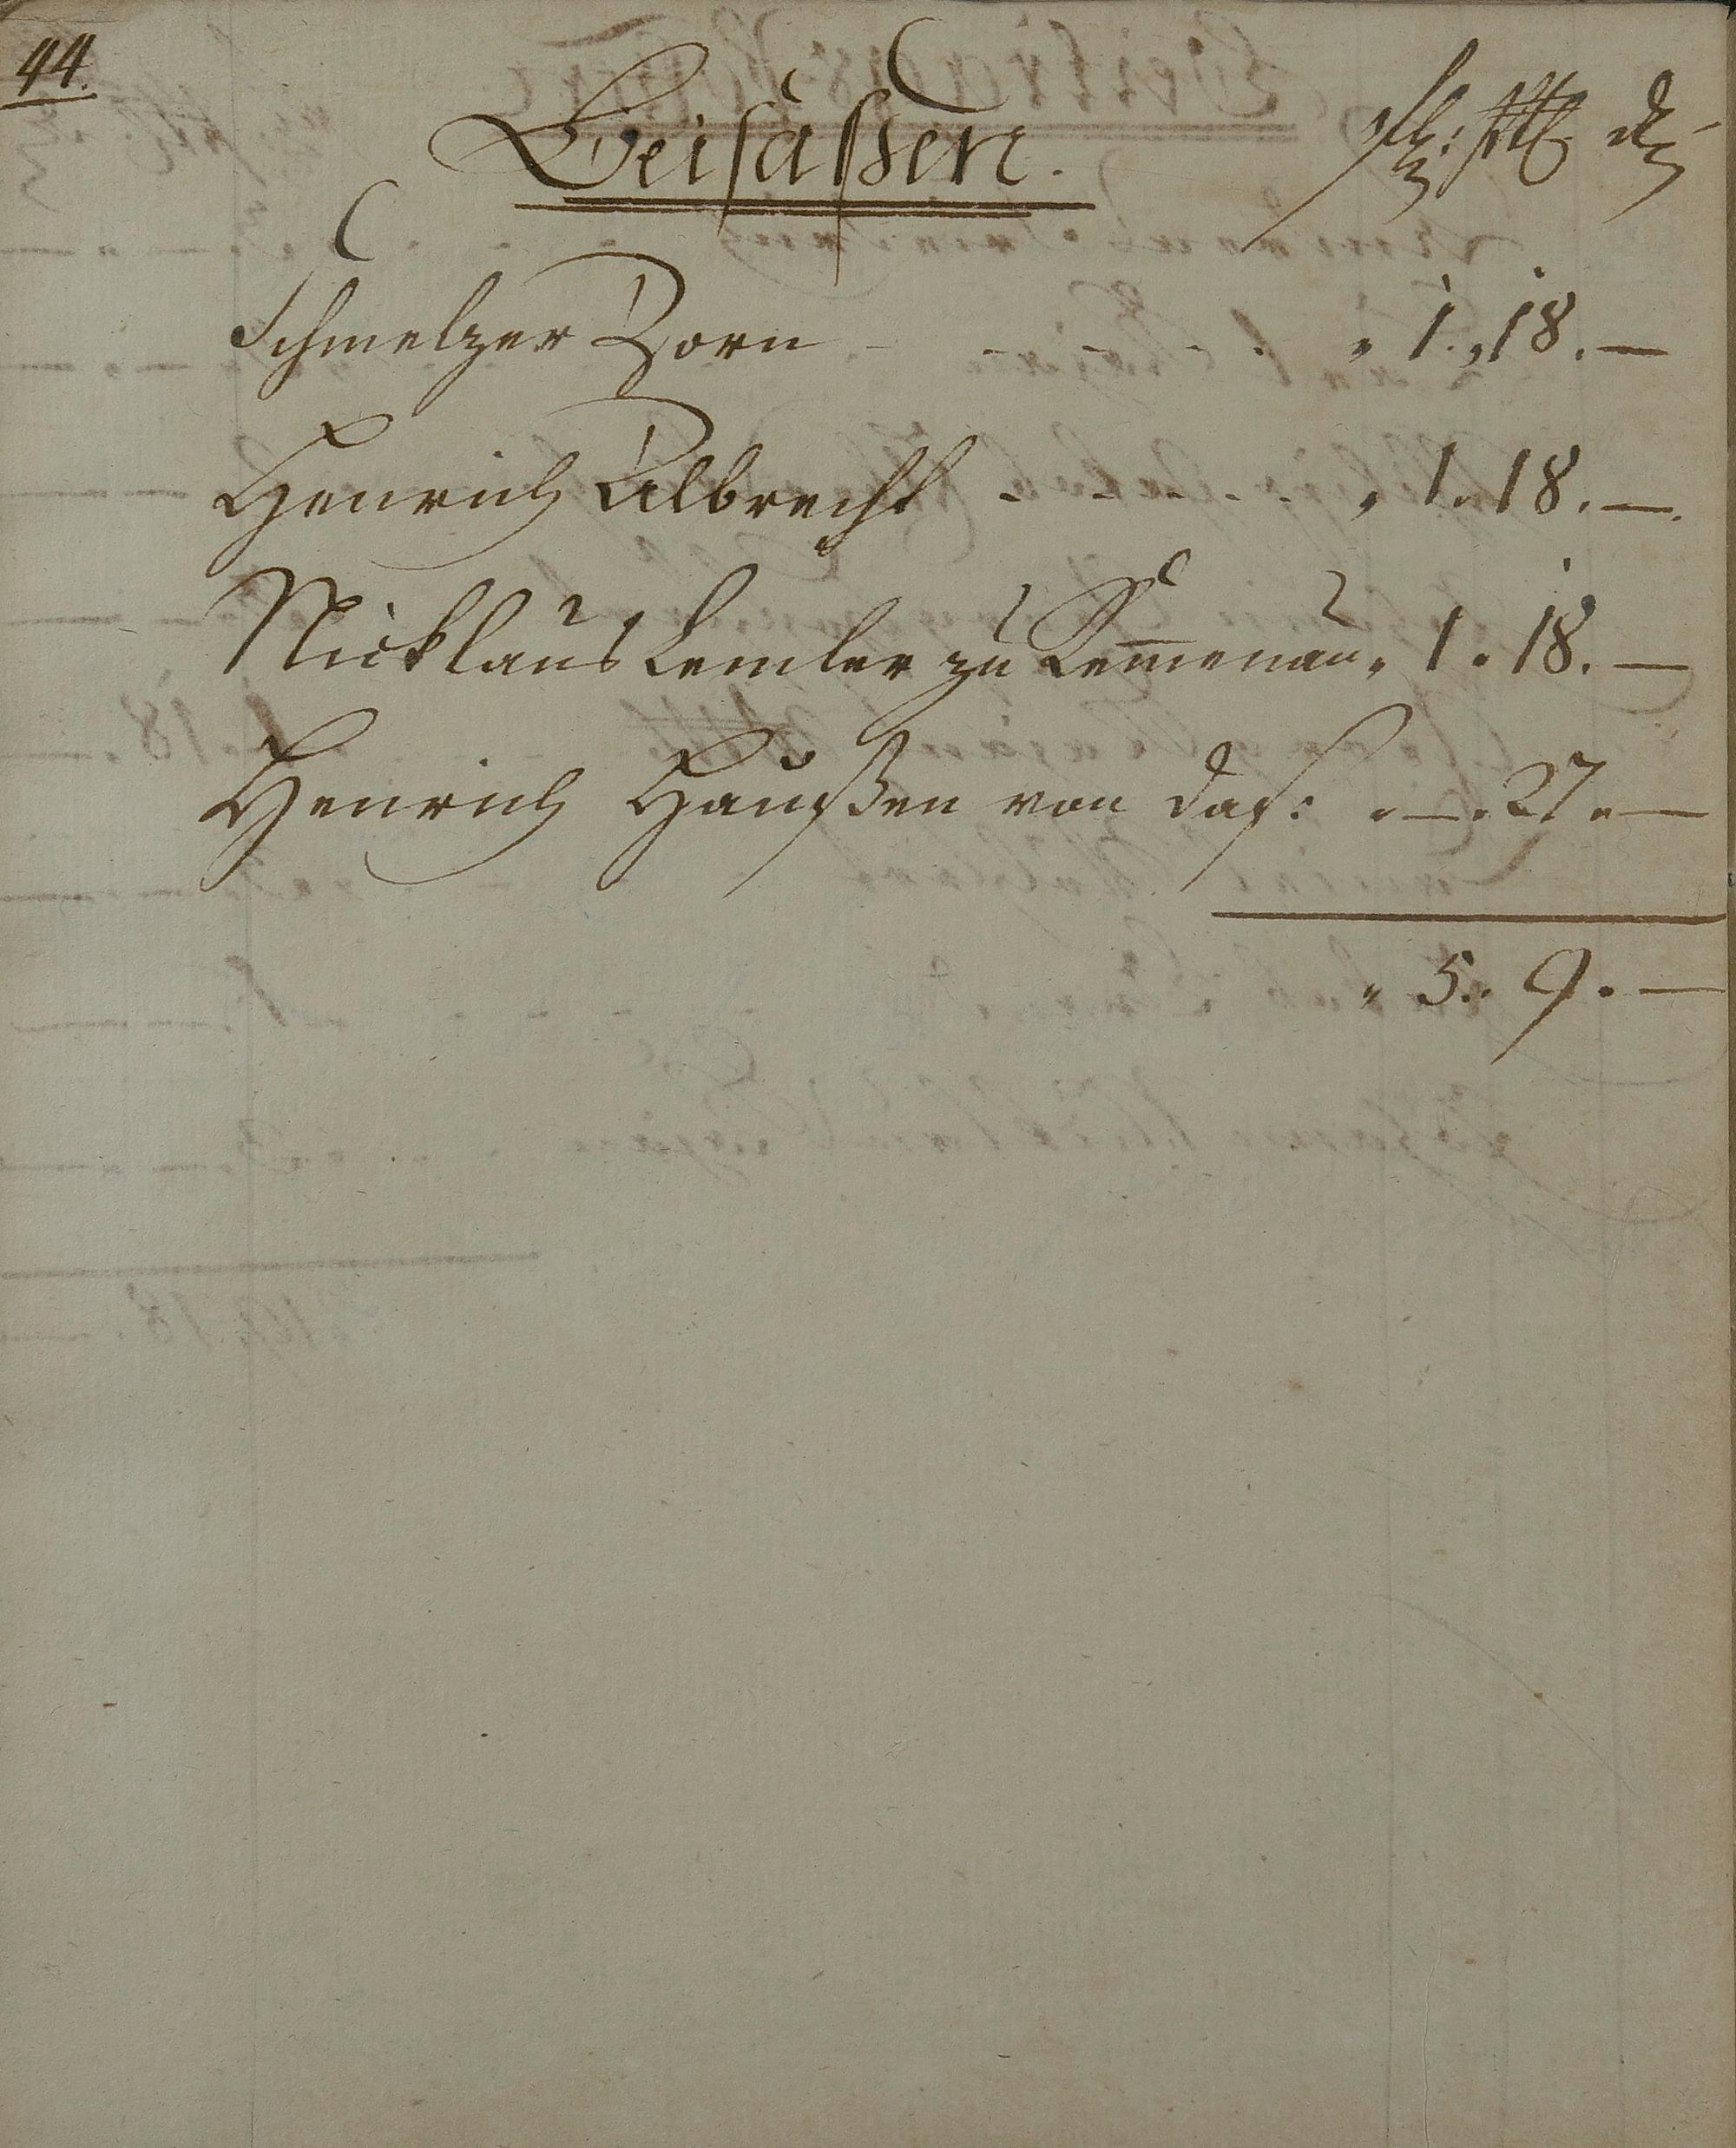 44.
Beisäßen.
Rthlr: Alb d
Schmelzer Zorn - - - - " 1., 18. —
Henrich Albrecht - - - - - " 1. 18. —.
Nicklaus Lemler zu Kem̄enau " 1. 18. —
Henrich Haußen von das: " —. 27. —
" 5.. 9. —